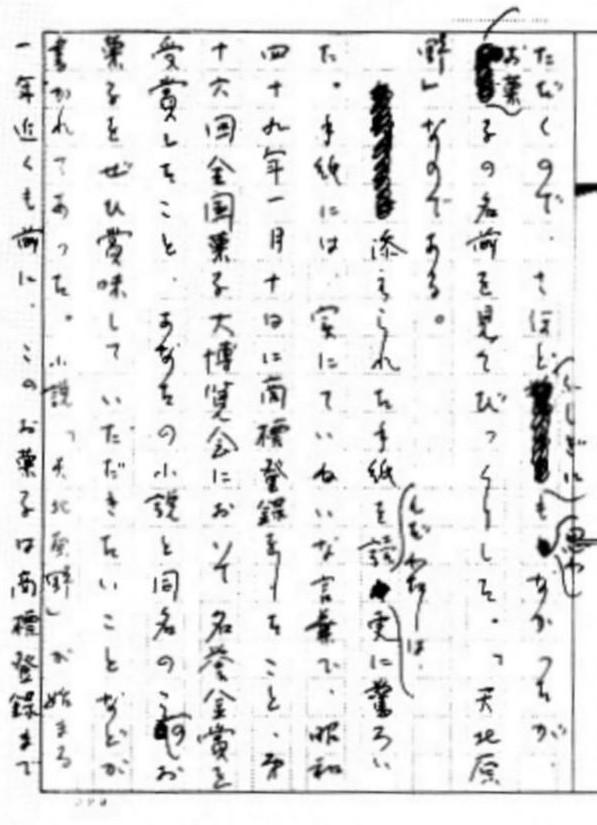 ただくので、さほどふしぎにも思わなかったが、
お菓子の名前を見てびっくりした。「天北原
野」なのである。
添えられた手紙を読んでわたしは、実に驚ろい
た。手紙には、実にていねいな言葉で、昭和
四十九年一月十日に商標登録をしたこと、第
十六回全国菓子大博覧会において名誉金賞を
受賞したこと、あなたの小説と同名のこのお
菓子をぜひ賞味していただきたいことなどが
書かれてあった。小説「天北原野」が始まる
一年近くも前に、このお菓子は商標登録まで